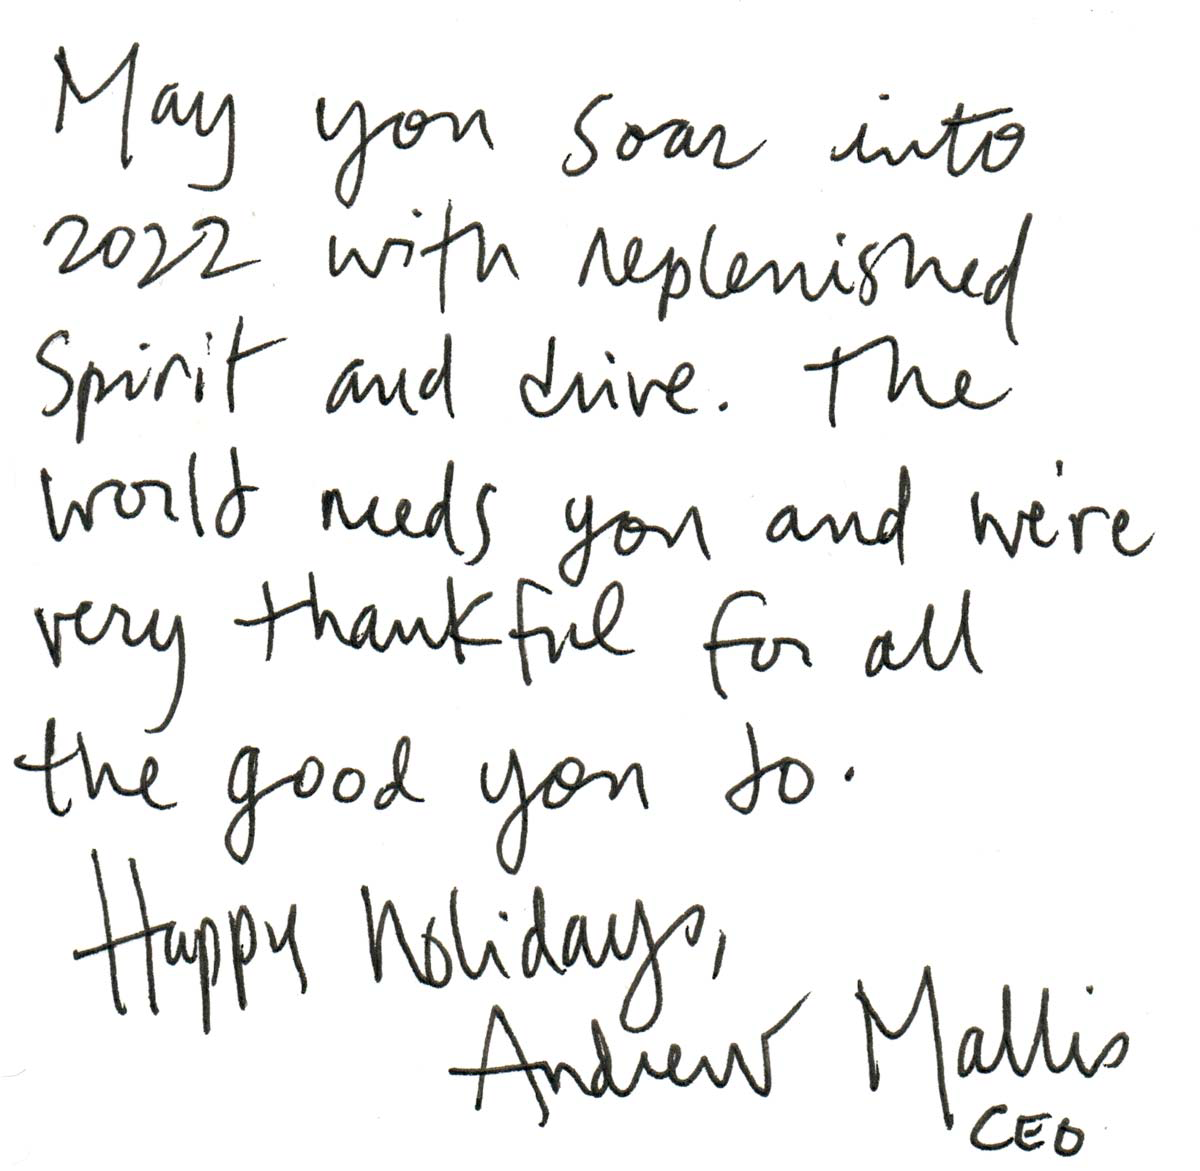 May you soar into
2022 with replenished
Spirit and drive. The
world needs you and we're
very thankful for all
the good you do.
Happy holidays,
Andrew Mallis
CEO